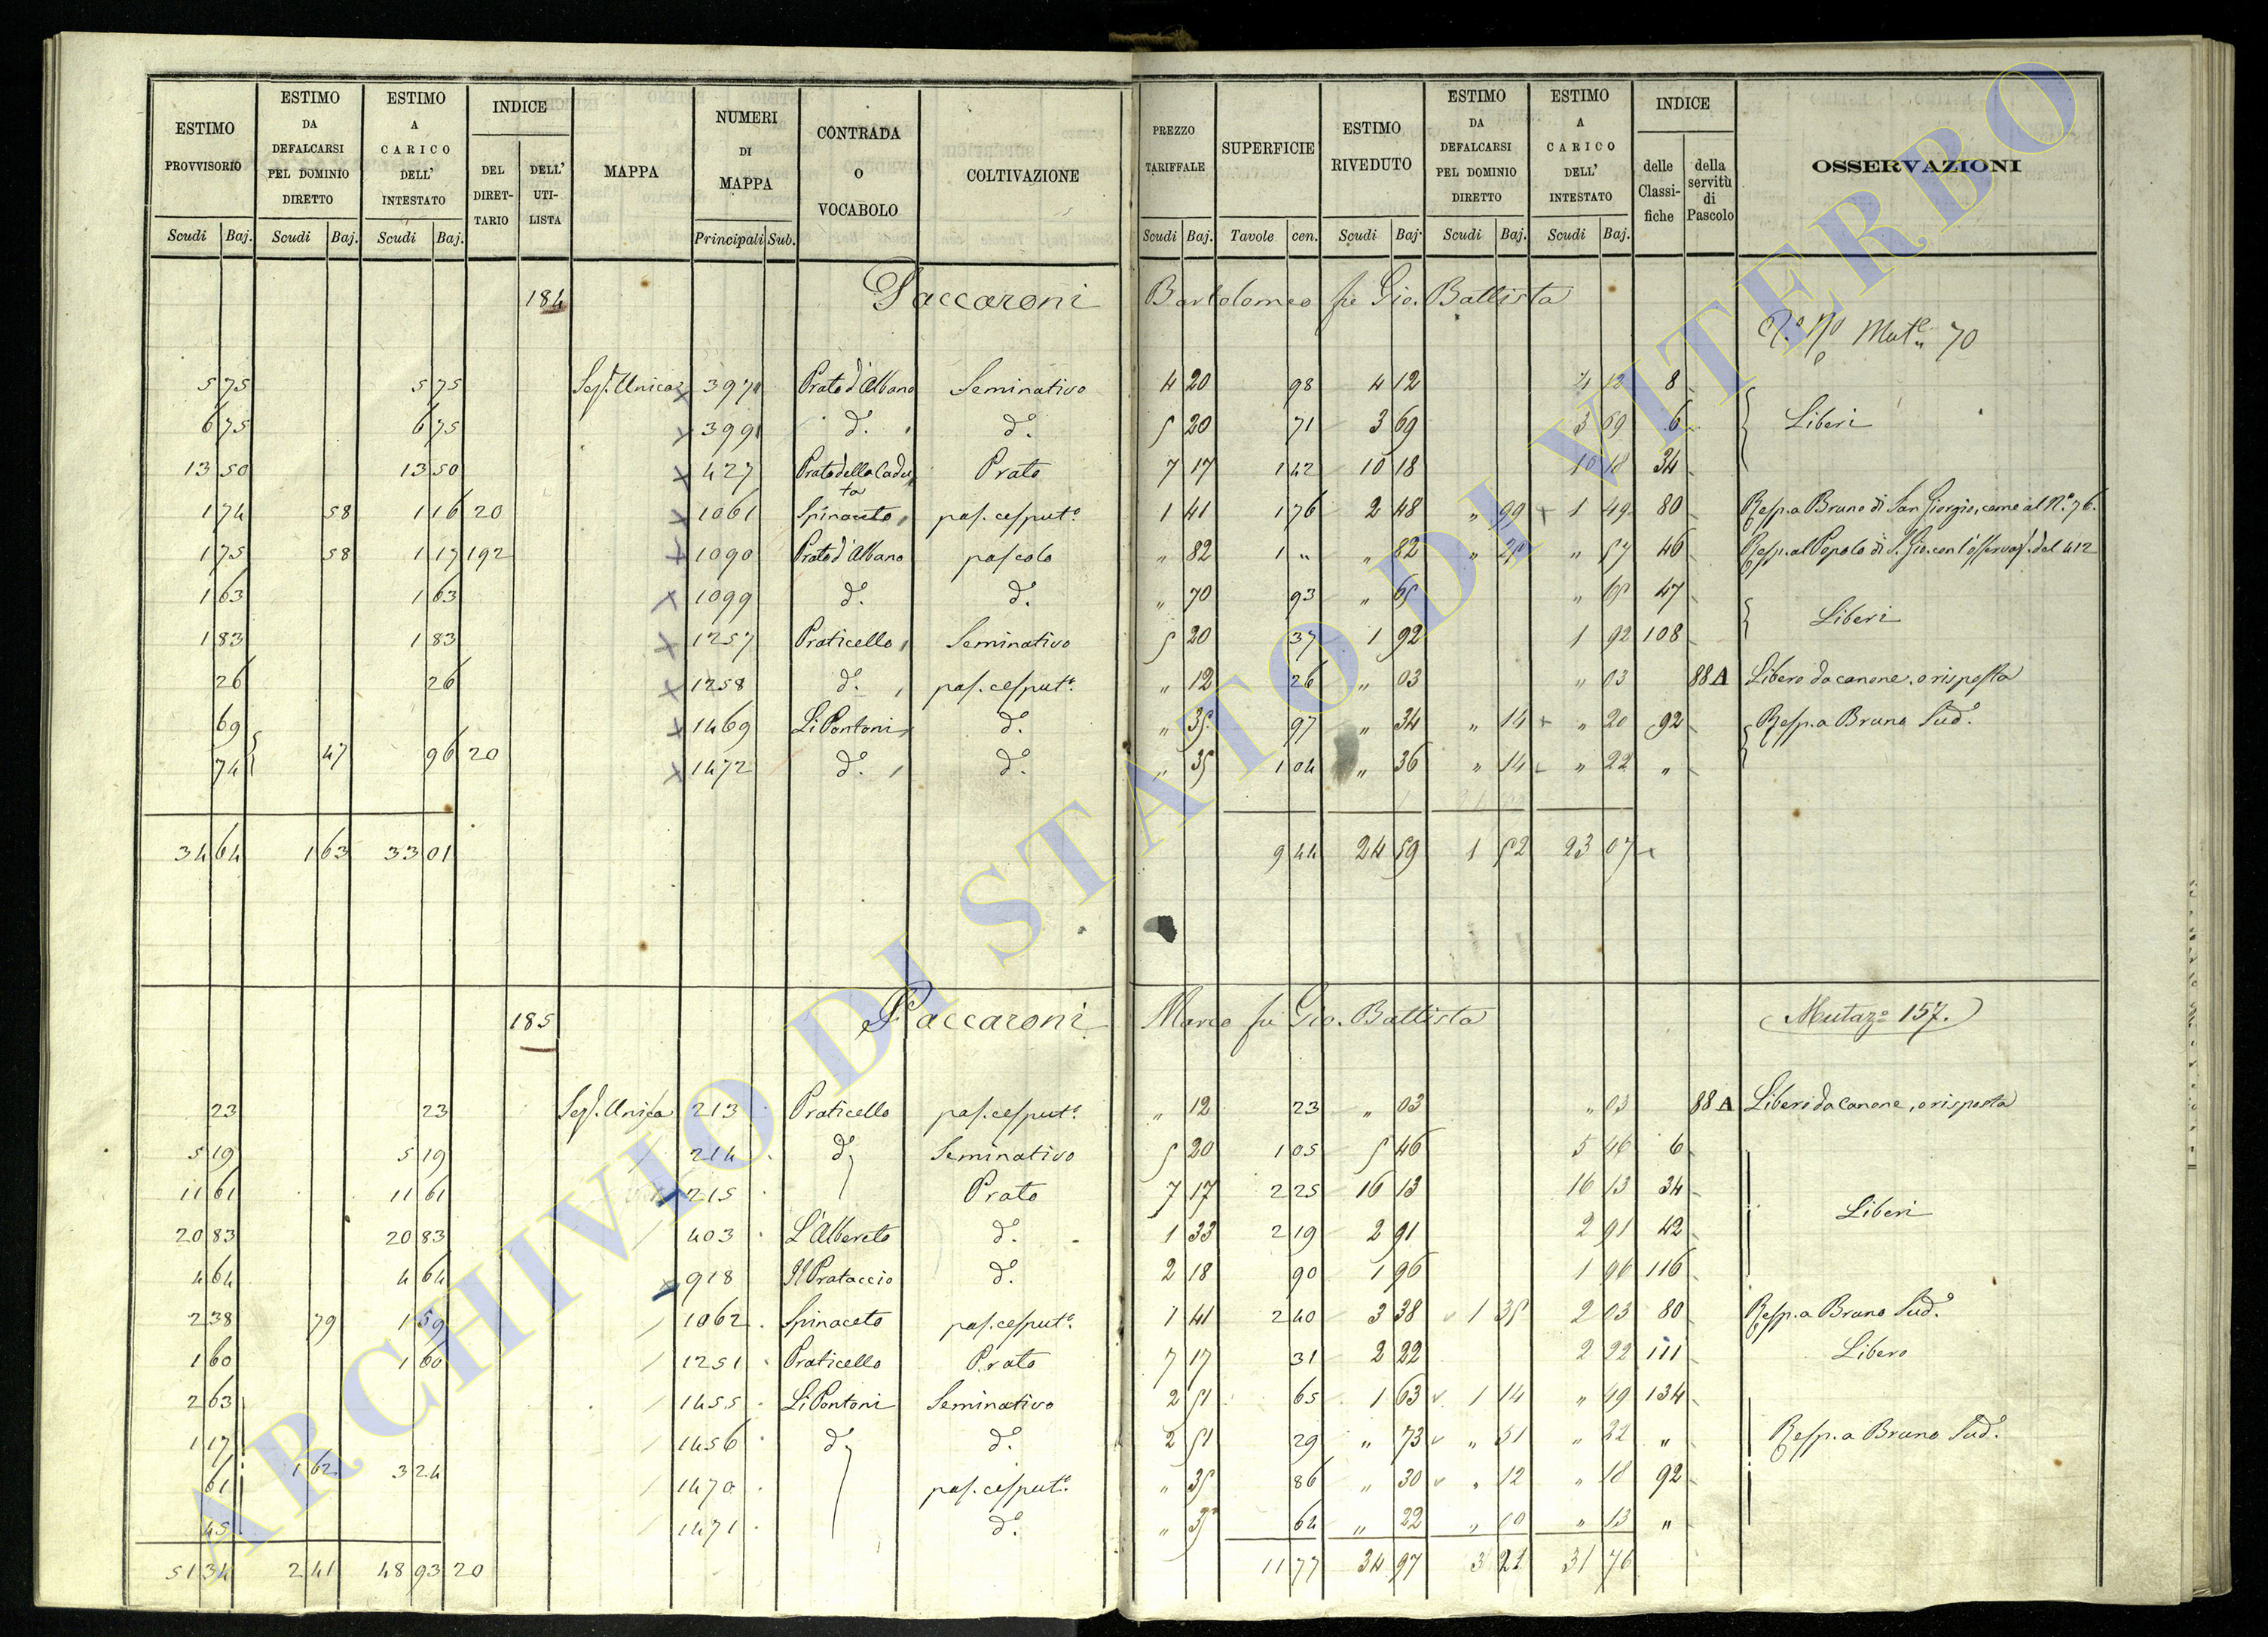 ESTIMO PROVVISORIO | ESTIMO DA DEFALCARSI PEL DOMINIO DIRETTO | ESTIMO A CARICO DELL' INTESTATO | INDICE DEL DIRETTARIO | DELL' UTILISTA | MAPPA | NUMERI DI MAPPA | CONTRADA O VOCABOLO | COLTIVAZIONE | PREZZO TARIFFALE | SUPERFICIE | ESTIMO RIVEDUTO | ESTIMO DA DEFALCARSI PEL DOMINIO DIRETTO | ESTIMO A CARICO DELL' INTESTATO | INDICE delle Classifiche | della servitù di Pascolo | OSSERVAZIONI
Scudi Baj. | Scudi Baj. | Scudi Baj. | Principali Sub. | Scudi Baj. | Tavole cen. | Scudi Baj. | Scudi Baj. | Scudi Baj.
184 Paccaroni Bartolomeo fu Gio. Battista
Mut.e 70
5 75 | 5 75 | Sez. Unica | 397 | Prato d'Albano | Seminativo | 4 20 | 98 | 4 12 | 4 12 | 8
6 75 | 6 75 | 399 | d.o | d.o | 5 20 | 71 | 3 69 | 3 69 | 6 | Liberi
13 50 | 13 50 | 427 | Prato della Caduta | Prato | 7 17 | 1 42 | 10 18 | 10 18 | 34
1 74 | 58 | 1 16 | 20 | 1061 | Spinaceto | pas. cesput.o | 1 41 | 1 76 | 2 48 | " 99 | 1 49 | 80 | Resp. a Bruno di San Giorgio, come al N.o 76.
1 75 | 58 | 1 17 | 192 | 1090 | Prato d'Albano | pascolo | " 82 | 1 " | " 82 | " 25 | " 57 | 46 | Resp. al Popolo di S. Gio. con l'osservaz. del 412
1 63 | 1 63 | 1099 | d.o | d.o | " 70 | 93 | " 65 | " 65 | 47
1 83 | 1 83 | 1257 | Praticello | Seminativo | 5 20 | 37 | 1 92 | 1 92 | 108 | Liberi
26 | 26 | 1258 | d.o | pas. cesput.o | " 12 | 26 | " 03 | " 03 | 88 A | Libero da canone, o risposta
69 | 1469 | Li Pontoni | d.o | " 35 | 97 | " 34 | " 14 | " 20 | 92 | Resp. a Bruno Sud.o
74 | 47 | 96 | 20 | 1472 | d.o | d.o | " 35 | 1 04 | " 36 | " 14 | " 22 | "
34 64 | 1 63 | 33 01 | 9 44 | 24 59 | 1 52 | 23 07
185 Paccaroni Marco fu Gio. Battista (Mutaz.e 157.)
23 | 23 | Sez. Unica | 213 | Praticello | pas. cesput.o | " 12 | 23 | " 03 | " 03 | 88 A | Liberi da Canone, o risposta
5 19 | 5 19 | 214 | d.o | Seminativo | 5 20 | 1 05 | 5 46 | 5 46 | 6
11 61 | 11 61 | 215 | Prato | 7 17 | 2 25 | 16 13 | 16 13 | 34 | Liberi
20 83 | 20 83 | 403 | L'Albereto | d.o | 1 33 | 2 19 | 2 91 | 2 91 | 42
4 64 | 4 64 | 918 | Il Prataccio | d.o | 2 18 | 90 | 1 96 | 1 96 | 116
2 38 | 79 | 1 59 | 1062 | Spinaceto | pas. cesput.o | 1 41 | 2 40 | 3 38 | 1 35 | 2 03 | 80 | Resp. a Bruno Sud.o
1 60 | 1 60 | 1251 | Praticello | Prato | 7 17 | 31 | 2 22 | 2 22 | 111 | Libero
2 63 | 1455 | Li Pontoni | Seminativo | 2 51 | 65 | 1 63 | 1 14 | " 49 | 134
1 17 | 1456 | d.o | d.o | 2 51 | 29 | " 73 | " 51 | " 22 | " | Resp. a Bruno Sud.o
61 | 1 62 | 3 24 | 1470 | pas. cesput.o | " 35 | 86 | " 30 | " 12 | " 18 | 92
45 | 1471 | d.o | " 35 | 64 | " 22 | " 09 | " 13 | "
51 34 | 2 41 | 48 93 | 20 | 11 77 | 34 97 | 3 21 | 31 76
ARCHIVIO DI STATO DI VITERBO